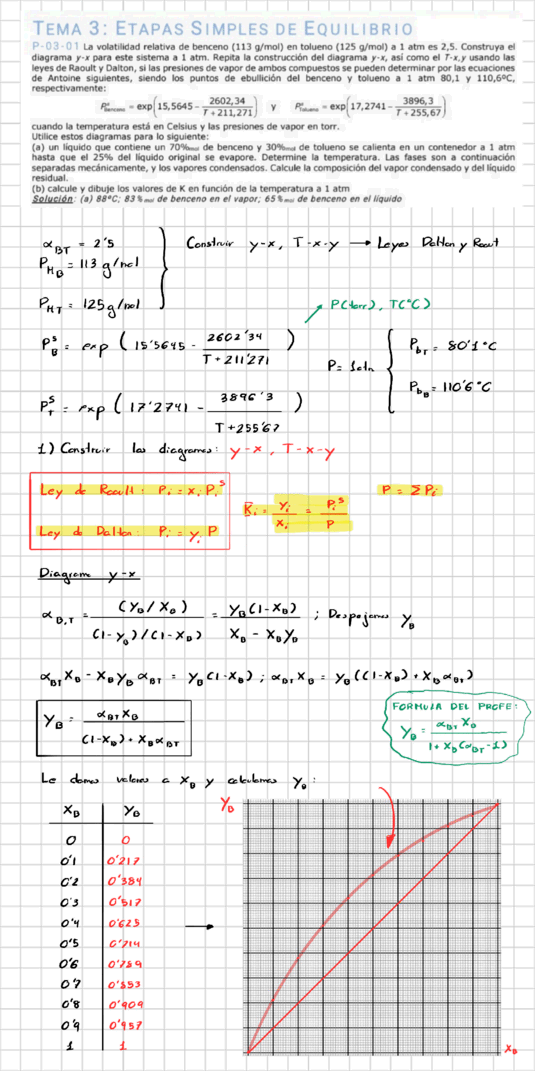 TEMA 3: ETAPAS SIMPLES DE EQUILIBRIO
P-03-01 La volatilidad relativa de benceno (113 g/mol) en tolueno (125 g/mol) a 1 atm es 2,5. Construya el
diagrama y-x para este sistema a 1 atm. Repita la construcción del diagrama y-x, así como el T-x,y usando las
leyes de Raoult y Dalton, si las presiones de vapor de ambos compuestos se pueden determinar por las ecuaciones
de Antoine siguientes, siendo los puntos de ebullición del benceno y tolueno a 1 atm 80,1 y 110,6ºC,
respectivamente:
P°Benceno = exp(15,5645 - 2602,34 / T+211,271) y P°Tolueno = exp(17,2741 - 3896,3 / T+255,67)
cuando la temperatura está en Celsius y las presiones de vapor en torr.
Utilice estos diagramas para lo siguiente:
(a) un líquido que contiene un 70%mol de benceno y 30%mol de tolueno se calienta en un contenedor a 1 atm
hasta que el 25% del líquido original se evapore. Determine la temperatura. Las fases son a continuación
separadas mecánicamente, y los vapores condensados. Calcule la composición del vapor condensado y del líquido
residual.
(b) calcule y dibuje los valores de K en función de la temperatura a 1 atm
Solución: (a) 88ºC; 83%mol de benceno en el vapor; 65%mol de benceno en el líquido
αBT = 2'5 Construir y-x, T-x-y → Leyes Dalton y Raoult
PMB = 113 g/mol
PMT = 125 g/mol
P(torr), T(°C)
PsB = exp (15'5645 - 2602'34 / T+211'271)
P = 1atm PbT = 80'1 °C
PbB = 110'6 °C
PsT = exp (17'2741 - 3896'3 / T+255'67)
1) Construir los diagramas: y-x, T-x-y
Ley de Raoult: Pi = xi Pis Ki = yi / xi = Pis / P P = ΣPi
Ley de Dalton: Pi = yi P
Diagrama y-x
αB,T = (yB/xB) / (1-yB)/(1-xB) = yB(1-xB) / xB - xByB ; Despejamos yB
αBT xB - xB yB αBT = yB(1-xB) ; αBT xB = yB((1-xB) + xB αBT)
yB = αBT xB / (1-xB) + xB αBT
FORMULA DEL PROFE:
yB = αBT xB / 1 + xB(αBT-1)
Le damos valores a xB y calculamos yB:
xB yB
0 0
0'1 0'217
0'2 0'384
0'3 0'517
0'4 0'625
0'5 0'714
0'6 0'789
0'7 0'853
0'8 0'909
0'9 0'957
1 1
yB
xB